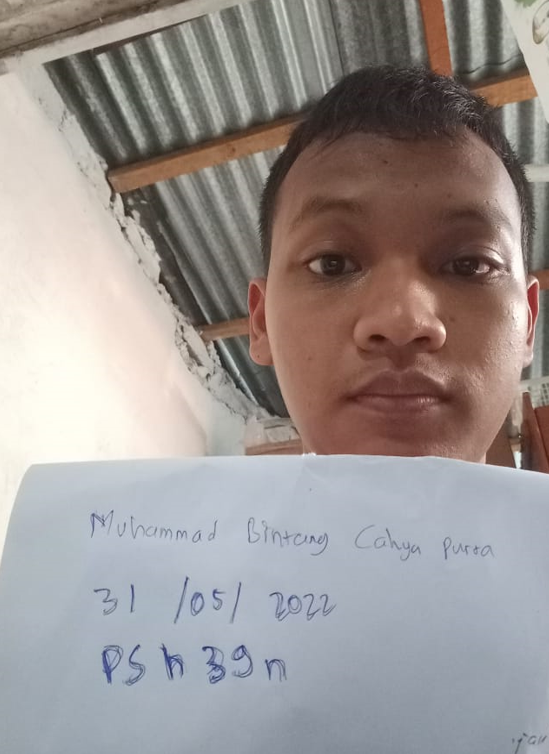 Muhammad Bintang Cahya Putra
31 /05/ 2022
PS h 39 n